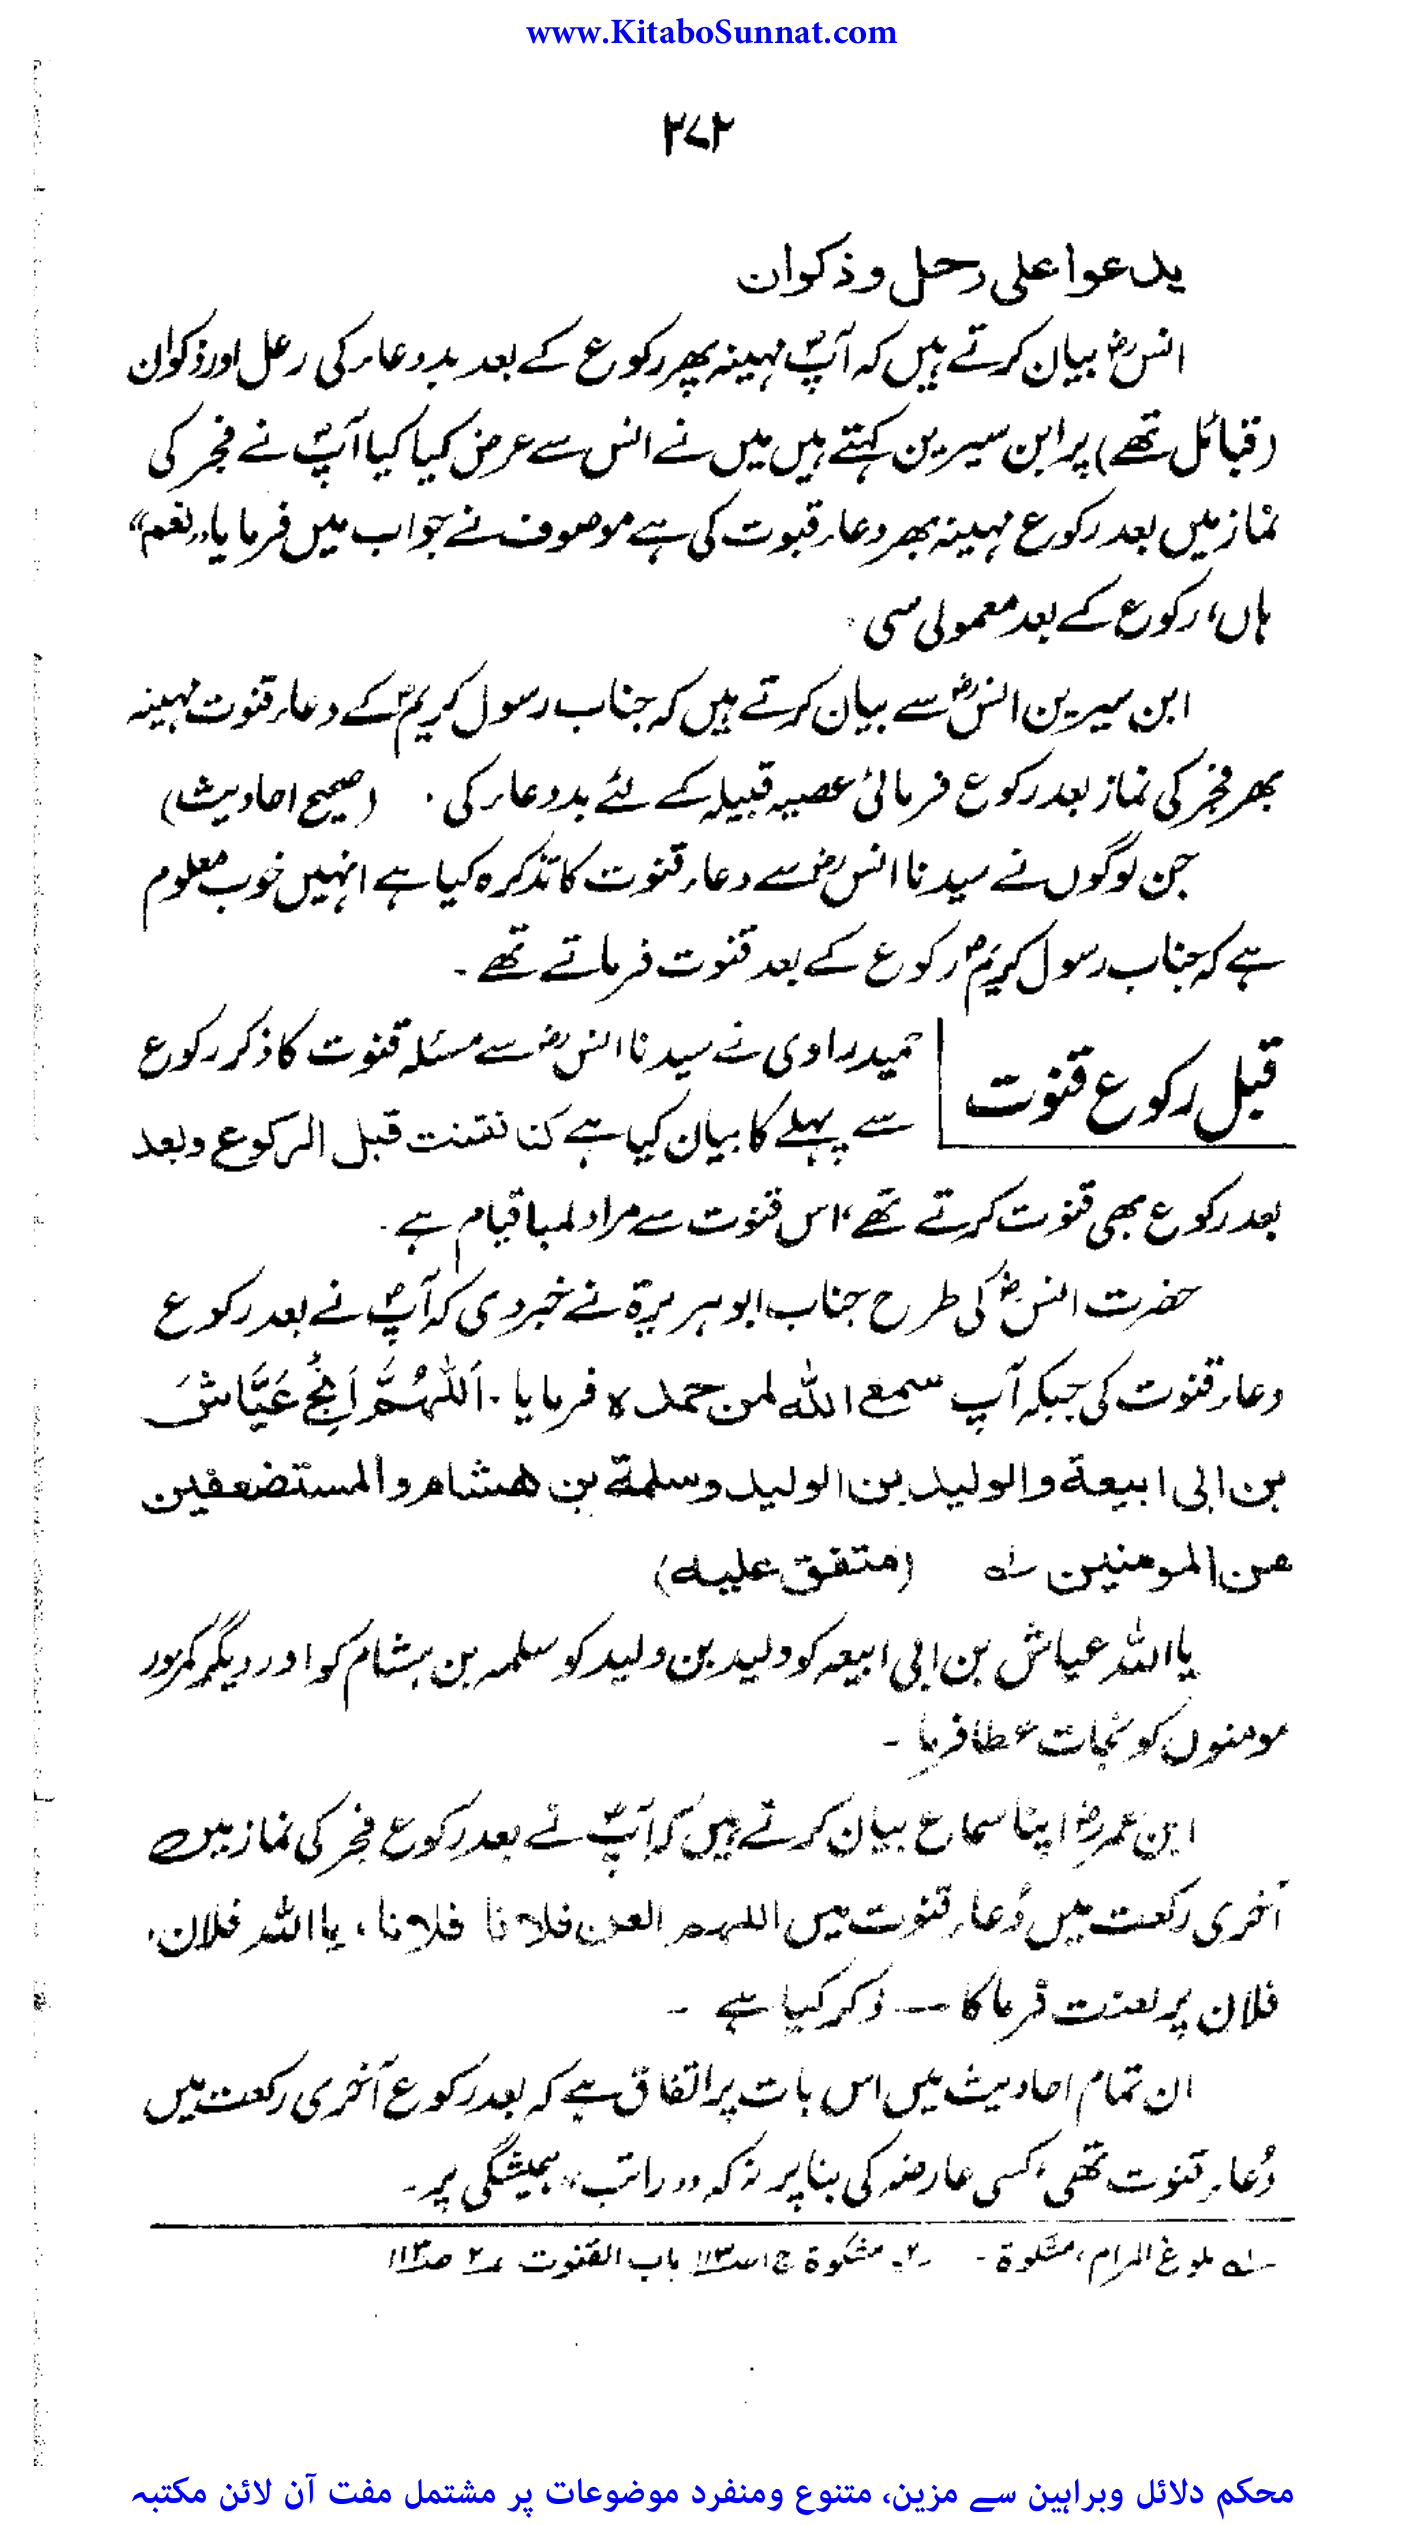 www.KitaboSunnat.com
۲۷۲
یدعوا علی رحل وذکوان
انسؓ بیان کرتے ہیں کہ آپؐ مہینہ بھر رکوع کے بعد بددعاء کی رعل اور ذکوان
(قبائل تھے) پر ابن سیرین کہتے ہیں میں نے انس سے عرض کیا کیا آپؐ نے فجر کی
نماز میں بعد رکوع مہینہ بھر دعاء قبوت کی ہے موصوف نے جواب میں فرمایا، "نعم"
ہاں، رکوع کے بعد معمولی سی۔
ابن سیرین انسؓ سے بیان کرتے ہیں کہ جناب رسول کریمؐ کے دعاء قنوت مہینہ
بھر فجر کی نماز بعد رکوع فرمائی عصیہ قبیلہ کے لئے بددعاء کی۔ (صحیح احادیث)
جن لوگوں نے سیدنا انسؓ سے دعاء قنوت کا تذکرہ کیا ہے انہیں خوب معلوم
ہے کہ جناب رسول کریمؐ رکوع کے بعد قنوت فرماتے تھے۔
قبل رکوع قنوت
حمید راوی نے سیدنا انسؓ سے مسئلہ قنوت کا ذکر رکوع
سے پہلے کا بیان کیا ہے کنا نقنت قبل الرکوع وبعد
بعد رکوع بھی قنوت کرتے تھے، اس قنوت سے مراد لمبا قیام ہے۔
حضرت انسؓ کی طرح جناب ابوہریرۃ نے خبر دی کہ آپؐ نے بعد رکوع
دعاء قنوت کی جبکہ آپ سمع اللہ لمن حمدہ فرمایا۔ اَللّٰہُمَّ اَنْجِ عَیَّاشَ
بن ابی ابیعۃ والولید بن الولید وسلمۃ بن ھشام والمستضعفین
من المومنین لہ (متفق علیہ)
یا اللہ عیاش بن ابی ابیعہ کو ولید بن ولید کو سلمہ بن ہشام کو اور دیگر کمزور
مومنوں کو نجات عطا فرما۔
ابن عمرؓ اپنا سماع بیان کرتے ہیں کہ آپؐ نے بعد رکوع فجر کی نماز میں
آخری رکعت میں دُعاء قنوت میں اللہم العن فلانا فلانا، یا اللہ فلان،
فلان پر لعنت فرما کا — ذکر کیا ہے۔
ان تمام احادیث میں اس بات پر اتفاق ہے کہ بعد رکوع آخری رکعت میں
دُعاء قنوت تھی، کسی عارضہ کی بنا پر نہ کہ "راتب" ہمیشگی پر۔
لہ بلوغ المرام، مشکوۃ۔ ۲۔ مشکوۃ ج۱ ص۱۱۳ باب القنوت ۲ ص۱۱۳
محکم دلائل وبراہین سے مزین، متنوع ومنفرد موضوعات پر مشتمل مفت آن لائن مکتبہ